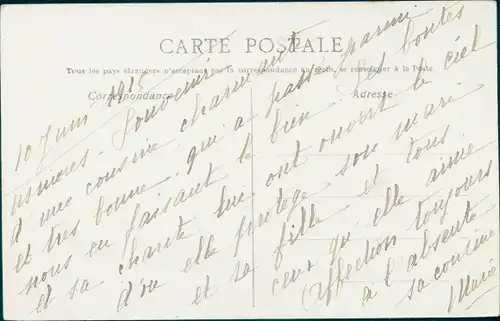 CARTE POSTALE
Tous les pays étrangers n'acceptent pas la correspondance au recto, se renseigner à la Poste.
Correspondance
Adresse
10 Juin 1915
Souvenir
d'une cousine charmante
et très bonne qui a passé parmi
nous en faisant le bien. Ses bontés
et sa charité lui ont ouvert le ciel
d'où elle protège son mari
et sa fille et tous
ceux qu'elle aime
Affection toujours
à l'absente
sa cousine
Marie